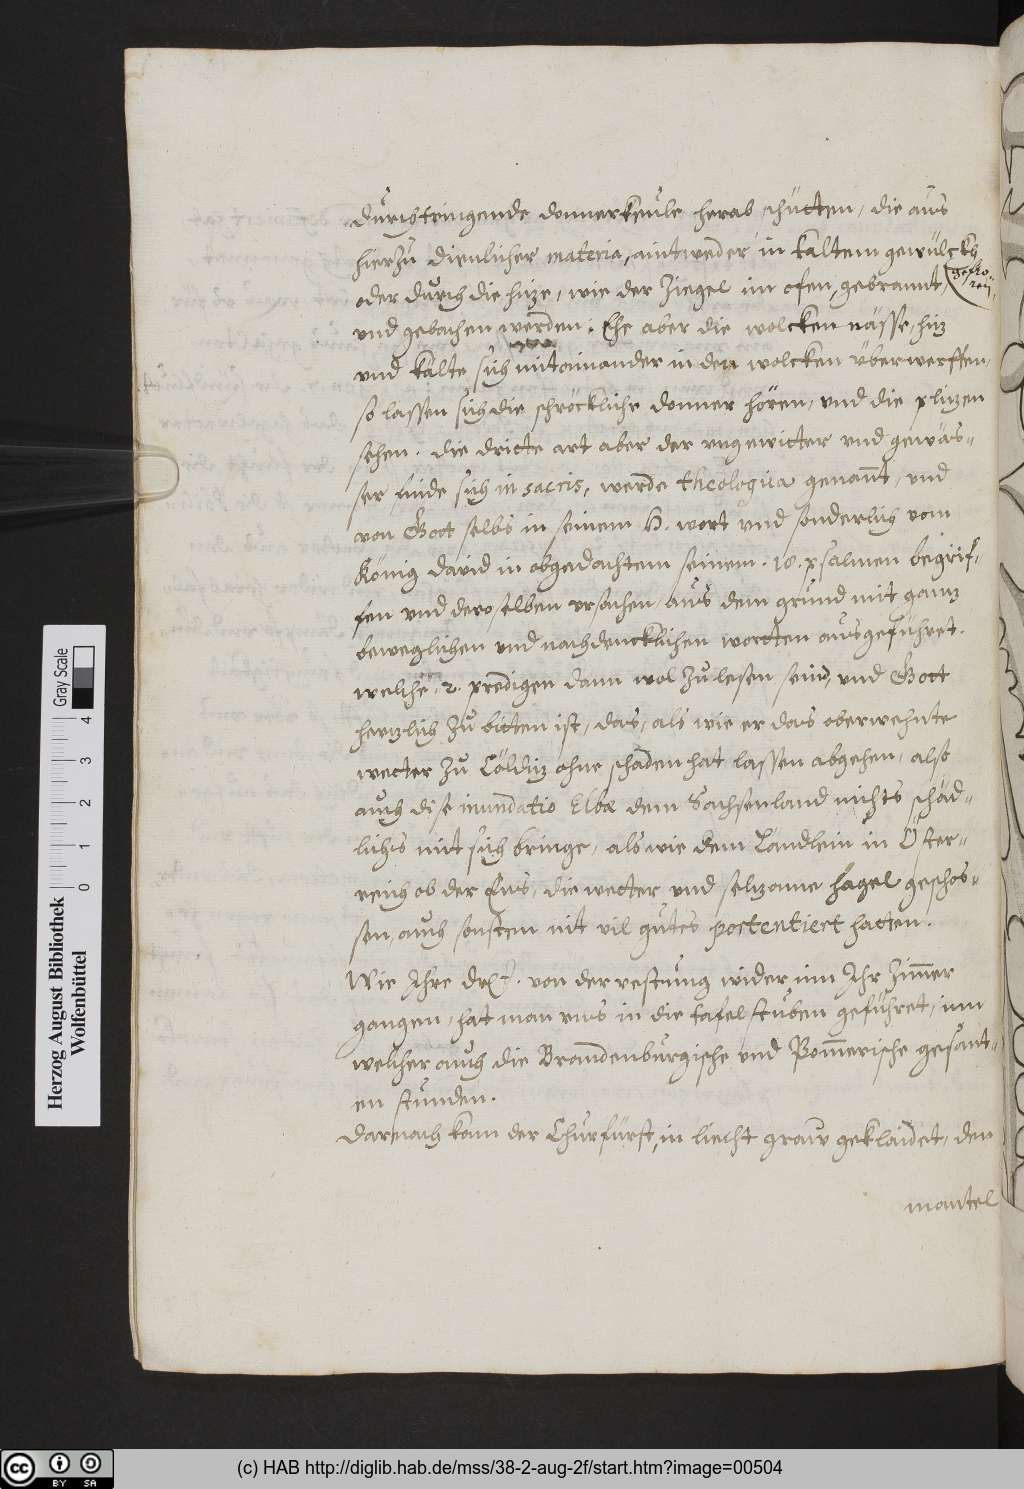 durchtringende donnerkeule herab schütten, die aus
hierzu dienlicher materia, aintweder in kaltem gewülckh
gefro-
ren,
oder durch die hize, wie der Ziegel im ofen, gebrannt,
und gebachen werden. Ehe aber die wolcken nässe, hiz
vnd kälte sich mitainander in den wolcken überwerffen,
so lassen sich die schröckliche donner hören, vnd die plizen
sehen. die dritte art aber der vngewitter vnd gewäs-
ser finde sich in sacris, werde theologica genant, vnd
von Gott selbs in seinem H. wort vnd sonderlich vom
König david in obgedachtem seinem 18. psalmen begrif-
fen vnd deroselben vrsachen, aus dem grund mit ganz
beweglichen vnd nachdencklichen wortten ausgeführet.
welche 2. predigen dann wol zu lesen sein, vnd Gott
herzlich zu bitten ist, das, als wie er das oberwehnte
wetter zu Cölditz ohne schaden hat lassen abgehen, also
auch dise inundatio Elbae dem Sachsenland nichts schäd-
lichs mit sich bringe, als wie dem Ländlein in Öster-
reich ob der Ens, die wetter vnd selzame hagel geschos-
sen, auch sonsten nit vil gutes portentiert hatten.
Wie Ihre drt. von der vestung wider inn Ihr Zimmer
gangen, hat man vns in die tafelstuben geführet, inn
welcher auch die Brandenburgische vnd Pommerische gesant-
en stunden.
Darnach kam der Churfürst, in liecht graw geklaidet, den
mantel
Herzog August Bibliothek
Wolfenbüttel
Gray Scale
0 1 2 3 4
cc BY SA
(c) HAB http://diglib.hab.de/mss/38-2-aug-2f/start.htm?image=00504